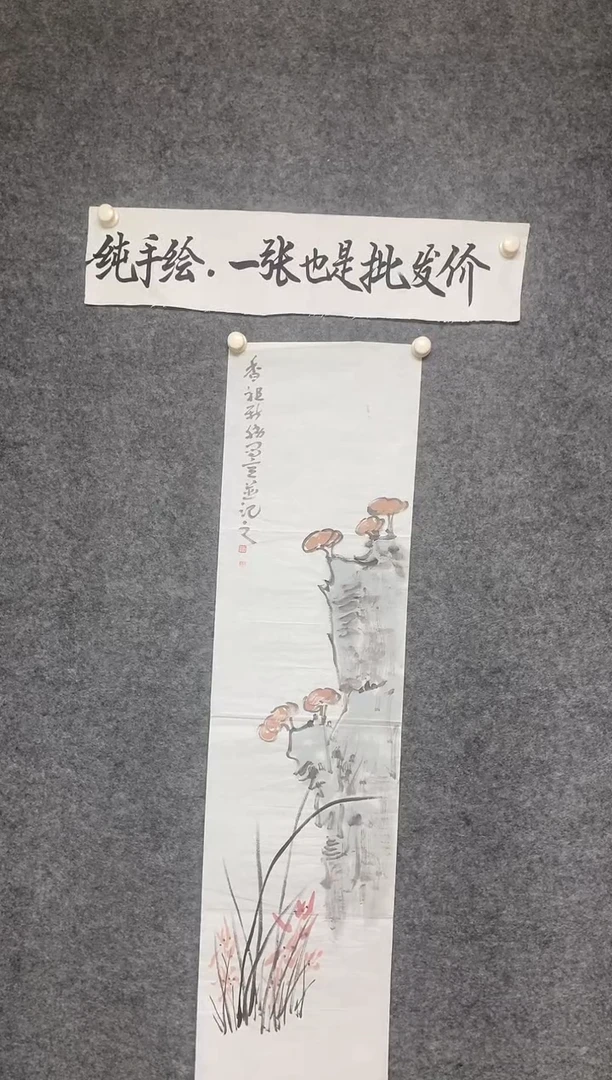 纯手绘.一张也是批发价
香祖
記之